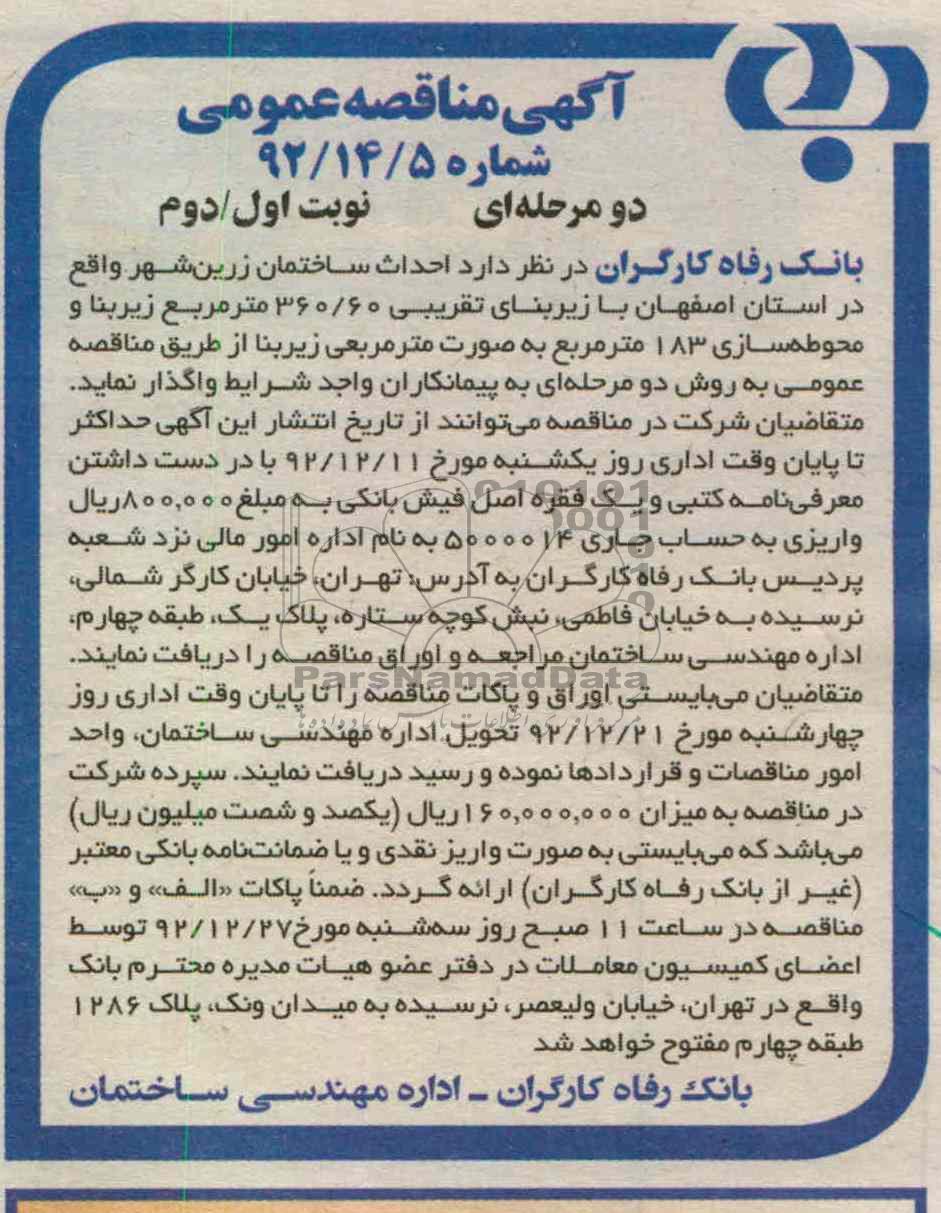 آگهی مناقصه عمومی
شماره ۹۲/۱۴/۵
دو مرحله‌ای نوبت اول/دوم
بانک رفاه کارگران در نظر دارد احداث ساختمان زرین‌شهر واقع
در استان اصفهان با زیربنای تقریبی ۳۶۰/۶۰ مترمربع زیربنا و
محوطه‌سازی ۱۸۳ مترمربع به صورت مترمربعی زیربنا از طریق مناقصه
عمومی به روش دو مرحله‌ای به پیمانکاران واجد شرایط واگذار نماید.
متقاضیان شرکت در مناقصه می‌توانند از تاریخ انتشار این آگهی حداکثر
تا پایان وقت اداری روز یکشنبه مورخ ۹۲/۱۲/۱۱ با در دست داشتن
معرفی‌نامه کتبی و یک فقره اصل فیش بانکی به مبلغ ۸۰۰,۰۰۰ ریال
واریزی به حساب جاری ۵۰۰۰۰۱۴ به نام اداره امور مالی نزد شعبه
پردیس بانک رفاه کارگران به آدرس: تهران، خیابان کارگر شمالی،
نرسیده به خیابان فاطمی، نبش کوچه ستاره، پلاک یک، طبقه چهارم،
اداره مهندسی ساختمان مراجعه و اوراق مناقصه را دریافت نمایند.
ParsNamadData
متقاضیان می‌بایستی اوراق و پاکات مناقصه را تا پایان وقت اداری روز
چهارشنبه مورخ ۹۲/۱۲/۲۱ تحویل اداره مهندسی ساختمان، واحد
امور مناقصات و قراردادها نموده و رسید دریافت نمایند. سپرده شرکت
در مناقصه به میزان ۱۶۰,۰۰۰,۰۰۰ ریال (یکصد و شصت میلیون ریال)
می‌باشد که می‌بایستی به صورت واریز نقدی و یا ضمانت‌نامه بانکی معتبر
(غیر از بانک رفاه کارگران) ارائه گردد. ضمناً پاکات «الف» و «ب»
مناقصه در ساعت ۱۱ صبح روز سه‌شنبه مورخ ۹۲/۱۲/۲۷ توسط
اعضای کمیسیون معاملات در دفتر عضو هیات مدیره محترم بانک
واقع در تهران، خیابان ولیعصر، نرسیده به میدان ونک، پلاک ۱۲۸۶
طبقه چهارم مفتوح خواهد شد
بانک رفاه کارگران ـ اداره مهندسی ساختمان